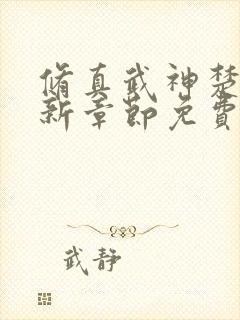 脩真武神楚
新章節免費
武靜